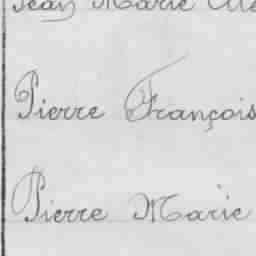 Jean Marie
Pierre François
Pierre Marie